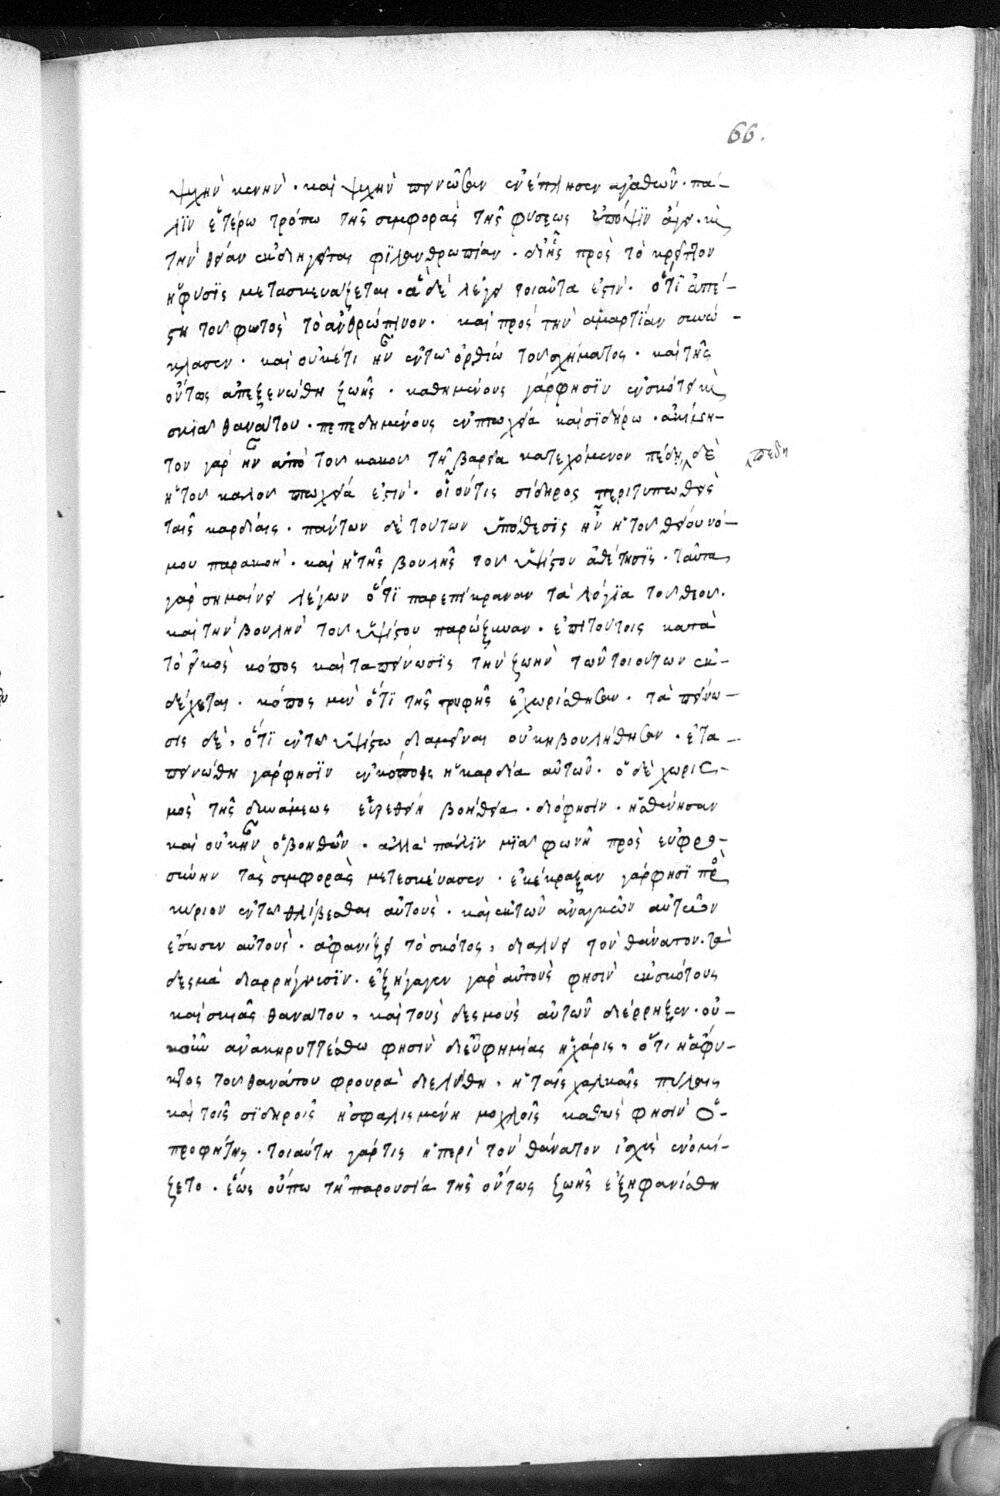 66.
ψυχὴν κενὴν · καὶ ψυχὴν πεινῶσαν ἐνέπλησεν ἀγαθῶν · πά-
λϊν ἑτέρω τρόπω τῆς συμφορᾶς τῆς φύσεως ὑπόψϊν ἄγει · καὶ
τὴν θείαν ἐκδιηγεῖται φϊλανθρωπίαν · δι' ἧς πρὸς τὸ κρεῖττον
ἡ φύσϊς μετασκευάζεται · ἃ δὲ λέγει τοιαῦτα ἐστιν · ὅτϊ ἀπέ-
στη τοῦ φωτὸς τὸ ἀνθρώπινον · καὶ πρὸς τὴν ἁμαρτίαν συνώ-
κλασεν · καὶ οὐκέτι ἦν ἐν τῶ ὀρθίω τοῦ σχήματος · καὶ τῆς
ὄντως ἀπεξενώθη ζωῆς · καθημένους γάρ φησϊν ἐν σκότει καὶ
σκιᾶ θανάτου · πεπεδημένους ἐν πτωχεία καὶ σϊδήρω · ἀκίνη-
τον γὰρ ἦν ἀπὸ τοῦ κακοῦ τῆ βαρεία κατεχόμενον πέδη δὲ
πεδη
ἡ τοῦ καλοῦ πτωχεία ἐστιν · οἷον τις σίδηρος περιτυπωθεὶς
ταῖς καρδίαις · πάντων δὲ τούτων ὑπόθεσϊς ἦν ἡ τοῦ θείου νό-
μου παρακοὴ · καὶ ἡ τῆς βουλῆς τοῦ ὑψίστου ἀθέτησϊς · ταῦτα
γὰρ σημαίνει λέγων ὅτϊ παρεπίκραναν τὰ λόγϊα τοῦ θεοῦ ·
καὶ τὴν βουλὴν τοῦ ὑψίστου παρώξυναν · ἐπὶ τούτοις κατὰ
τὸ εἰκὸς κόπος καὶ ταπείνωσϊς τὴν ζωὴν τῶν τοιούτων ἐκ-
δέχεται · κόπος μὲν ὅτϊ τῆς τρυφῆς ἐχωρίσθησαν · ταπείνω-
σις δὲ, ὅτϊ ἐν τῶ ὑψίστω διαμεῖναι οὐκ ἠβουλήθησαν · ἐτα-
πεινώθη γάρ φησϊν ἐν κόποις ἡ καρδία αὐτῶν · ὁ δὲ χωρισ-
μὸς τῆς δυνάμεως εὑρεθείη βοήθεια · διό φησιν · ἠσθένησαν
καὶ οὐκ ἦν ὁ βοηθῶν · ἀλλὰ πάλϊν μϊᾶ φωνῆ πρὸς εὐφρο-
σύνην τὰς συμφορὰς μετεσκεύασεν · ἐκέκραξαν γάρ φησϊ πρὸς
κύριον ἐν τῶ θλίβεσθαι αὐτοὺς · καὶ ἐκ τῶν ἀναγκῶν αὐτῶν
ἔσωσεν αὐτοὺς · ἀφανίζει τὸ σκότος, διαλύει τὸν θάνατον · τὰ
δεσμὰ διαρρήγνυσϊν · ἐξήγαγεν γὰρ αὐτοὺς φησὶν ἐκ σκότους
καὶ σκιᾶς θανάτου, καὶ τοὺς δεσμοὺς αὐτῶν διέρρηξεν · οὐ-
κοῦν ἀνακηρυττέσθω φησὶν δι' εὐφημίας ἡ χάρις, ὅτι ἡ ἄφυ-
κτος τοῦ θανάτου φρουρὰ διελύθη, ἡ ταῖς χαλκαῖς πύλαις
καὶ τοῖς σϊδηροῖς ἠσφαλισμένη μοχλοῖς καθώς φησιν ὁ
προφήτης · τοιαύτη γάρ τις ἡ περὶ τὸν θάνατον ἰσχὺς ἐνομί-
ζετο · ἕως οὔπω τῆ παρουσία τῆς ὄντως ζωῆς ἐξηφανίσθη